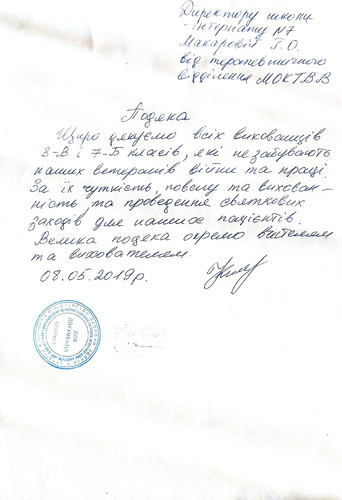 Директору школи
-інтернату №7
Макаровій Г.О.
від терапевтичного
відділення МОКТВВ
Подяка
Щиро дякуємо всіх вихованців
3-В і 7-Б класів, які не забувають
наших ветеранів війни та праці.
За їх чуткість, повагу та вихован-
ність, та проведення святкових
заходів для наших пацієнтів.
Велика подяка окремо вчителям
та вихователям.
08.05.2019р.
ДЛЯ
ДОКУМЕНТІВ